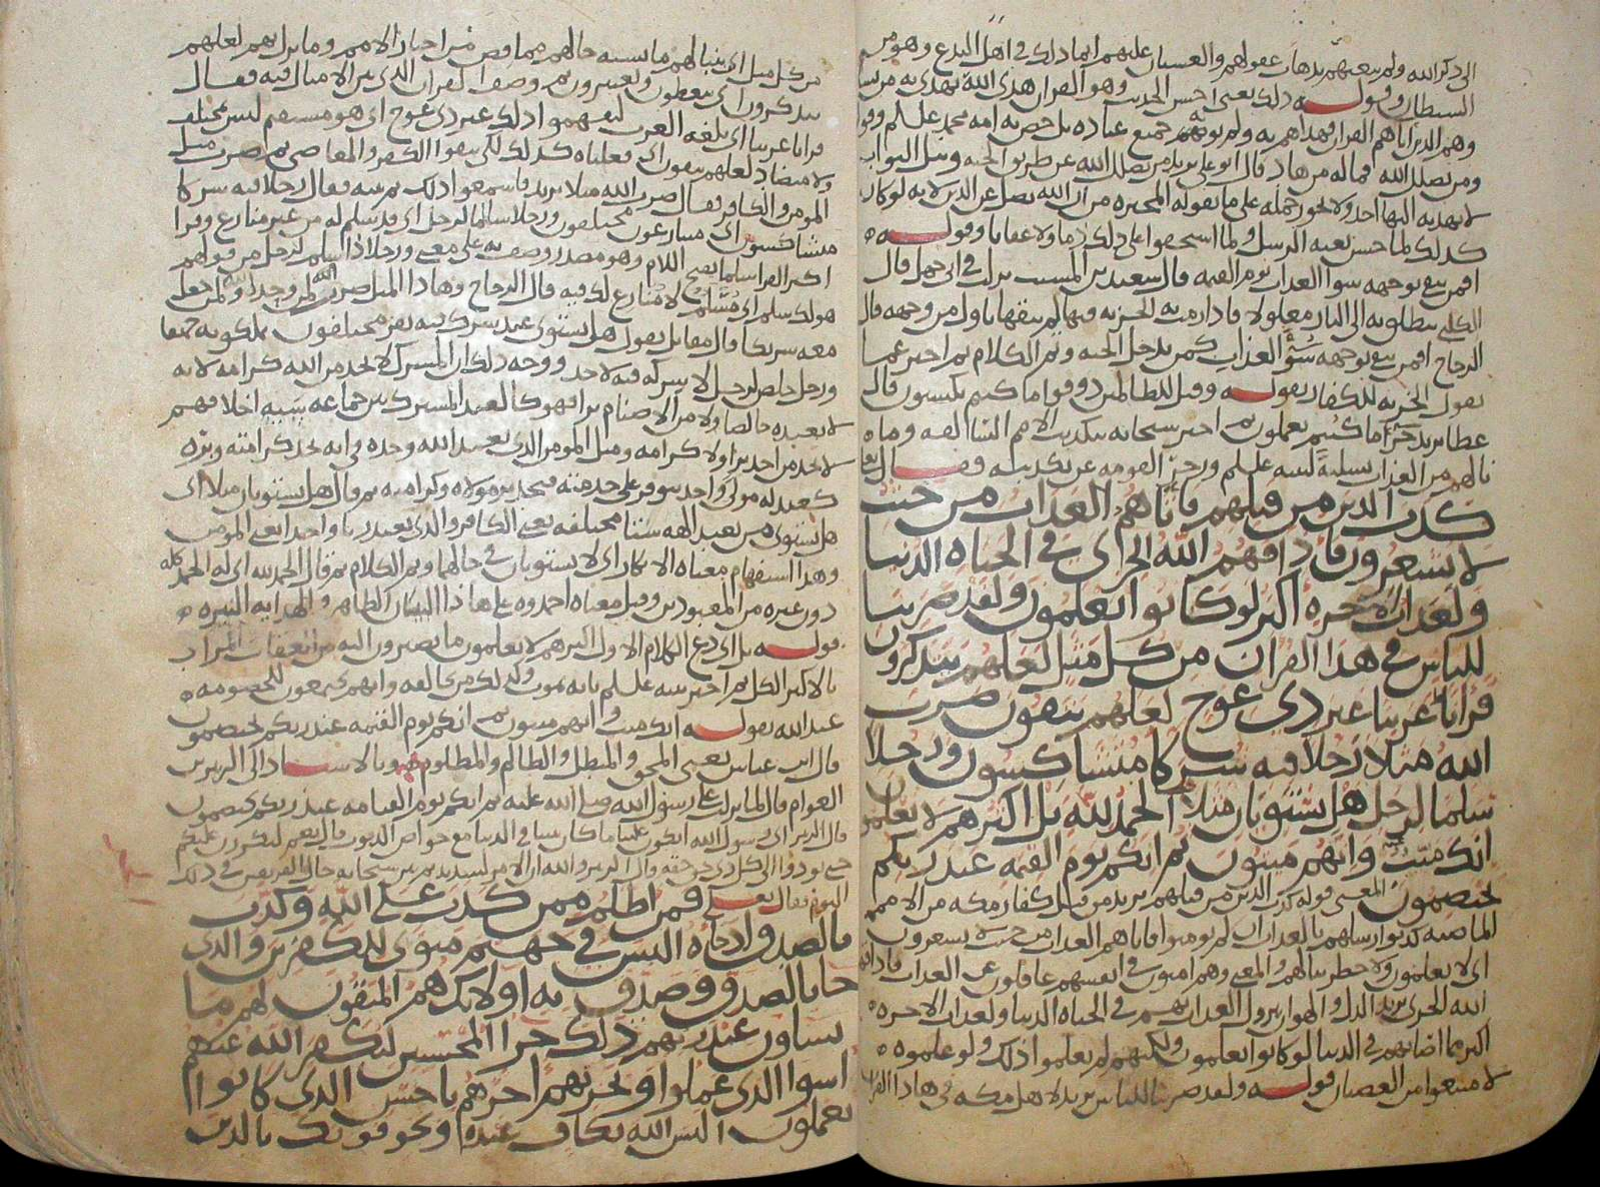 الى ذكر الله ولم ينعتهم بذهاب عقولهم والغشيان عليهم انما ذلك في اهل البدع وهو من
الشيطان وقوله ذلك يعني احسن الحديث وهو القران هدى الله يهدي به من يشا
وهم الذين اتاهم القران فهداهم به ولم جميع عباده بل خص به امه محمد علسلم
ومن يضلل الله فما له من هاد قال ابو علي يريد من يضلل الله عن طريق الجنه ونيل الثواب
لا يهديه اليها احد ولا يجوز حمله على ما تقوله المجبره من ان الله يضل عن الدين لانه لو كان
كذلك لما حسن بعثه الرسل ولما استحقوا على ذلك ذما ولا عقابا وقوله
افمن يتقي بوجهه سوا العذاب يوم القيمه قال سعيد بن المسيب نزلت في ابي جهل قال
الكلبي ينطلق به الى النار مغلولا فاذا رمت به الخزنه فيها لم يتقها باول من وجهه قال
الزجاج افمن يتقي بوجهه سوء العذاب كمن يدخل الجنه وتم الكلام ثم اخبر عما
يقول الخزنه للكفار بقوله وقيل للظالمين ذوقوا ما كنتم تكسبون قال
عطا يريد جزا ما كنتم تعملون ثم اخبر سبحانه بتكذيب الامم السالفه وما
نالهم من العذاب تسلية لنبيه علسلم وزجرا لقومه عن تكذيبه فقال
كذب الذين من قبلهم فاتاهم العذاب من حيث
لا يشعرون فاذاقهم الله الخزي في الحياه الدنيا
ولعذاب الاخره اكبر لو كانوا يعلمون ولقد ضربنا
للناس في هذا القران من كل مثل لعلهم يتذكرون
قرانا عربيا غير ذي عوج لعلهم يتقون ضرب
الله مثلا رجلا فيه شركا متشاكسون ورجلا
سلما لرجل هل يستويان مثلا الحمد لله بل اكثرهم لا يعلمون
انك ميت وانهم ميتون ثم انكم يوم القيمه عند ربكم
تختصمون المعنى قوله كذب الذين من قبلهم يريد من قبل كفار مكه من الامم
الماضيه كذبوا رسلهم بالعذاب ان لم يومنوا فاتاهم العذاب من حيث لا يشعرون
اي لا يعلمون ولا خطر ببالهم والمعنى وهم امنون في انفسهم غافلون عن العذاب فاذاقهم
الله الخزي يريد الذل والهوان بنزول العذاب بهم في الحياه الدنيا ولعذاب الاخره
اكبر مما اصابهم في الدنيا لو كانوا يعلمون ولكنهم لم يعلموا ذلك ولو علموه
لامتنعوا من العصيان قوله ولقد ضربنا للناس يريد لاهل مكه في هاذا القران
من كل مثل اي بينا لهم ما يشبه حالهم مما قص من اخبار الامم وما نزل بهم لعلهم
يتذكرون اي يتعظون ويعتبرون ثم وصف القران الذي بين الامثال فيه فقال
قرانا عربيا اي بلغه العرب ليفهموا ذلك غير ذي عوج اي هو مستقيم ليس بمختلف
ولا متضاد لعلهم يتقون اي فعلناه كذلك لكي يتقوا الكفر والمعاصي ثم ضرب مثل
المومن والكافر فقال ضرب الله مثلا يريد فاسمعوا ذلك ثم بينه فقال رجلا فيه شركا
متشاكسون اي متنازعون مختلفون ورجلا سالما لرجل اي قد سلم له من غير منازع وقرا
اكثر القرا سلما بفتح اللام وهو مصدر وصف به على معنى ورجلا ذا سلم لرجل من قولهم
هو لك سلم اي مسلم لا منازع لك فيه قال الزجاج وهاذا المثل ضرب لمن وحد الله ولمن جعل
معه شريكا قال مقاتل يقول هل يستوي عبد يشترك فيه نفر مختلفون يملكونه جميعا
ورجل خالص لرجل لا يشركه فيه لاحد ووجه ذلك ان المشرك لا يجد من الله كرامه لانه
لا يعبده خالصا ولا من الاصنام نزا فهو كالعبد المشترك بين جماعه سيئه اخلاقهم
لا يجد من احد برا ولا كرامه ومثل المومن الذي يعبد الله وحده في انه يجد كرامته وبره
كعبد له مولى واحد يتوفر على خدمته فيجد بر مولاه وكرامته ثم قال هل يستويان مثلا اي
هل يستوي من يعبد الهه شتا مختلفه يعني الكافر والذي يعبد ربا واحدا يعني المومن
وهذا استفهام معناه الانكار اي لا يستويان في حالهما وتم الكلام ثم قال الحمد لله اي له الحمد كله
دون غيره من المعبودين وقيل معناه احمدوه على هاذا البيان الظاهر والهدايه النيره
قوله بل اي دع الكلام الاول اكثرهم لا يعلمون ما يصيرون اليه من العقاب المراد
بالاكثر الكل ثم اخبر نبيه علسلم بانه يموت وكذلك من خالفه وانهم يجتمعون للخصومه
عند الله بقوله انك ميت وانهم ميتون ثم انكم يوم القيمه عند ربكم تختصمون
قال ابن عباس يعني المحق والمبطل والظالم والمظلوم وبالاسناد الى الزبير بن
العوام قال لما نزلت على رسول الله صلى الله عليه ثم انكم يوم القيامه عند ربكم تختصمون
قال الزبير اي رسول الله ايكون علينا ما كان بيننا في الدنيا مع خواص الذنوب قال نعم ليكررن عليكم
حتى تودوا الى كل ذي حق حقه قال الزبير والله ان الامر لشديد ثم بين سبحانه حال الفريقين في ذلك
اليوم فقال تعلى فمن اظلم ممن كذب على الله وكذب
بالصدق اذ جاه اليس في جهنم مثوى للكفرين والذي
جا بالصدق وصدق به اولئك هم المتقون لهم ما
يشاون عند ربهم ذلك جزا المحسنين ليكفر الله عنهم
اسوا الذي عملوا ويجزيهم اجرهم باحسن الذي كانوا
يعملون اليس الله بكاف عبده ويخوفونك بالذين